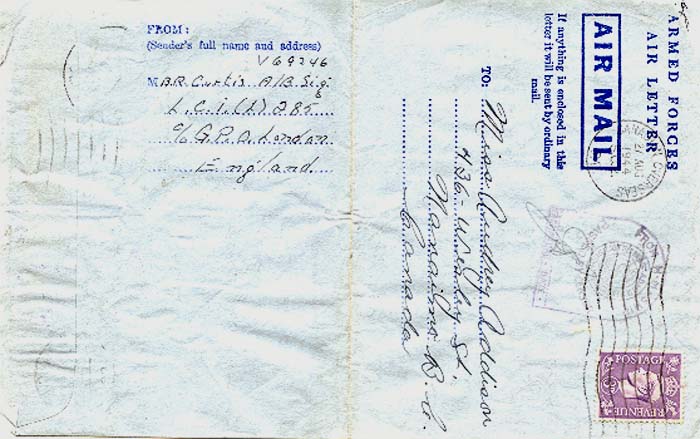 FROM:
(Sender's full name and address)
V69246
M B.R. Curtis A/B. Sig.
L.C.I.(L) 285
c/o G.P.O. London
England
ARMED FORCES
AIR LETTER
AIR MAIL
If anything is enclosed in this
letter it will be sent by ordinary
mail.
TO: Miss Audrey Addison
436 St.
Nanaimo B.C.
Canada
OVERSEAS
27 AUG
1944
FROM
POSTAGE
REVENUE